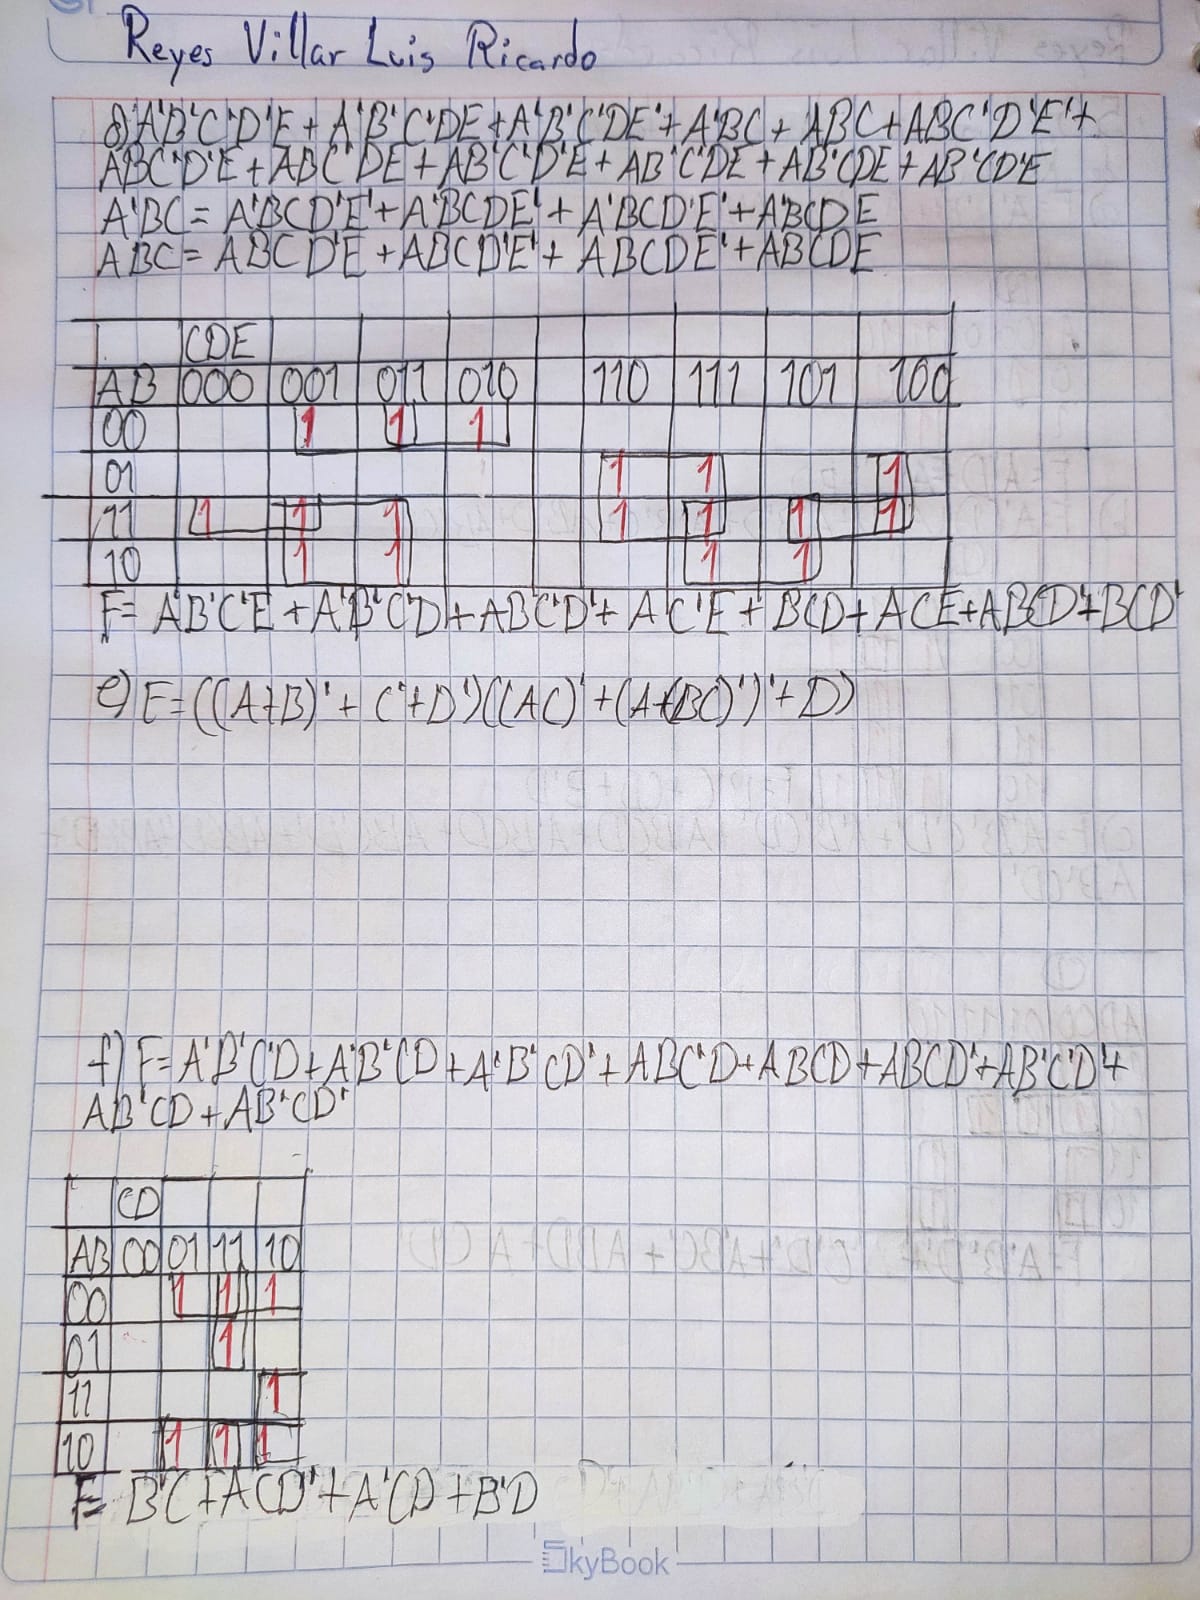 Reyes Villar Luis Ricardo
d) A'B'C'D'E + A'B'C'DE + A'B'C'DE' + A'BC + ABC + ABC'D'E' +
ABC'D'E + ABC'DE + AB'C'D'E + AB'C'DE + AB'CDE + AB'CD'E
A'BC = A'BCD'E' + A'BCDE' + A'BCD'E' + A'BCDE
ABC = ABCD'E + ABCD'E' + ABCDE' + ABCDE
CDE
AB 000 001 011 010 110 111 101 100
00 1 1 1
01 1 1 1
11 1 1 1 1 1 1 1
10 1 1 1 1
F= A'B'C'E + A'B'C'D + ABC'D' + AC'E + BCD + ACE + ABCD' + BCD'
e) F = ((A+B)' + C' + D')((AC)' + (A+(BC)')' + D)
f) F = A'B'C'D + A'B'CD + A'B'CD' + ABC'D + ABCD + ABCD' + AB'C'D' +
AB'CD + AB'CD'
CD
AB 00 01 11 10
00 1 1 1
01 1
11 1
10 1 1 1
F= B'C + ACD' + A'CD + B'D
SkyBook